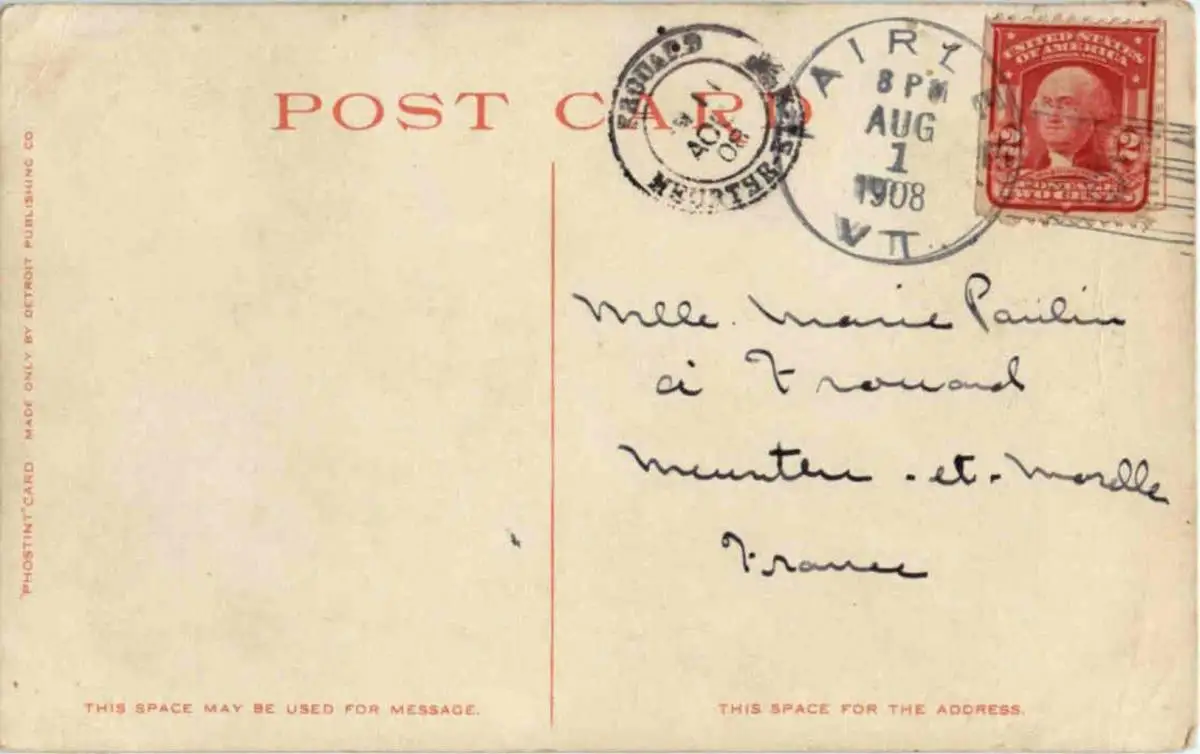 POST CARD
"PHOSTINT" CARD MADE ONLY BY DETROIT PUBLISHING CO.
FROUARD
AOUT
08
MEURTHE-ET-
FAIRLEE
8 PM
AUG
1
1908
VT.
UNITED STATES
OF AMERICA
2 2
TWO CENTS
Mlle. Marie Paulin
à Frouard
Meurthe-et-Moselle
France
THIS SPACE MAY BE USED FOR MESSAGE.
THIS SPACE FOR THE ADDRESS.